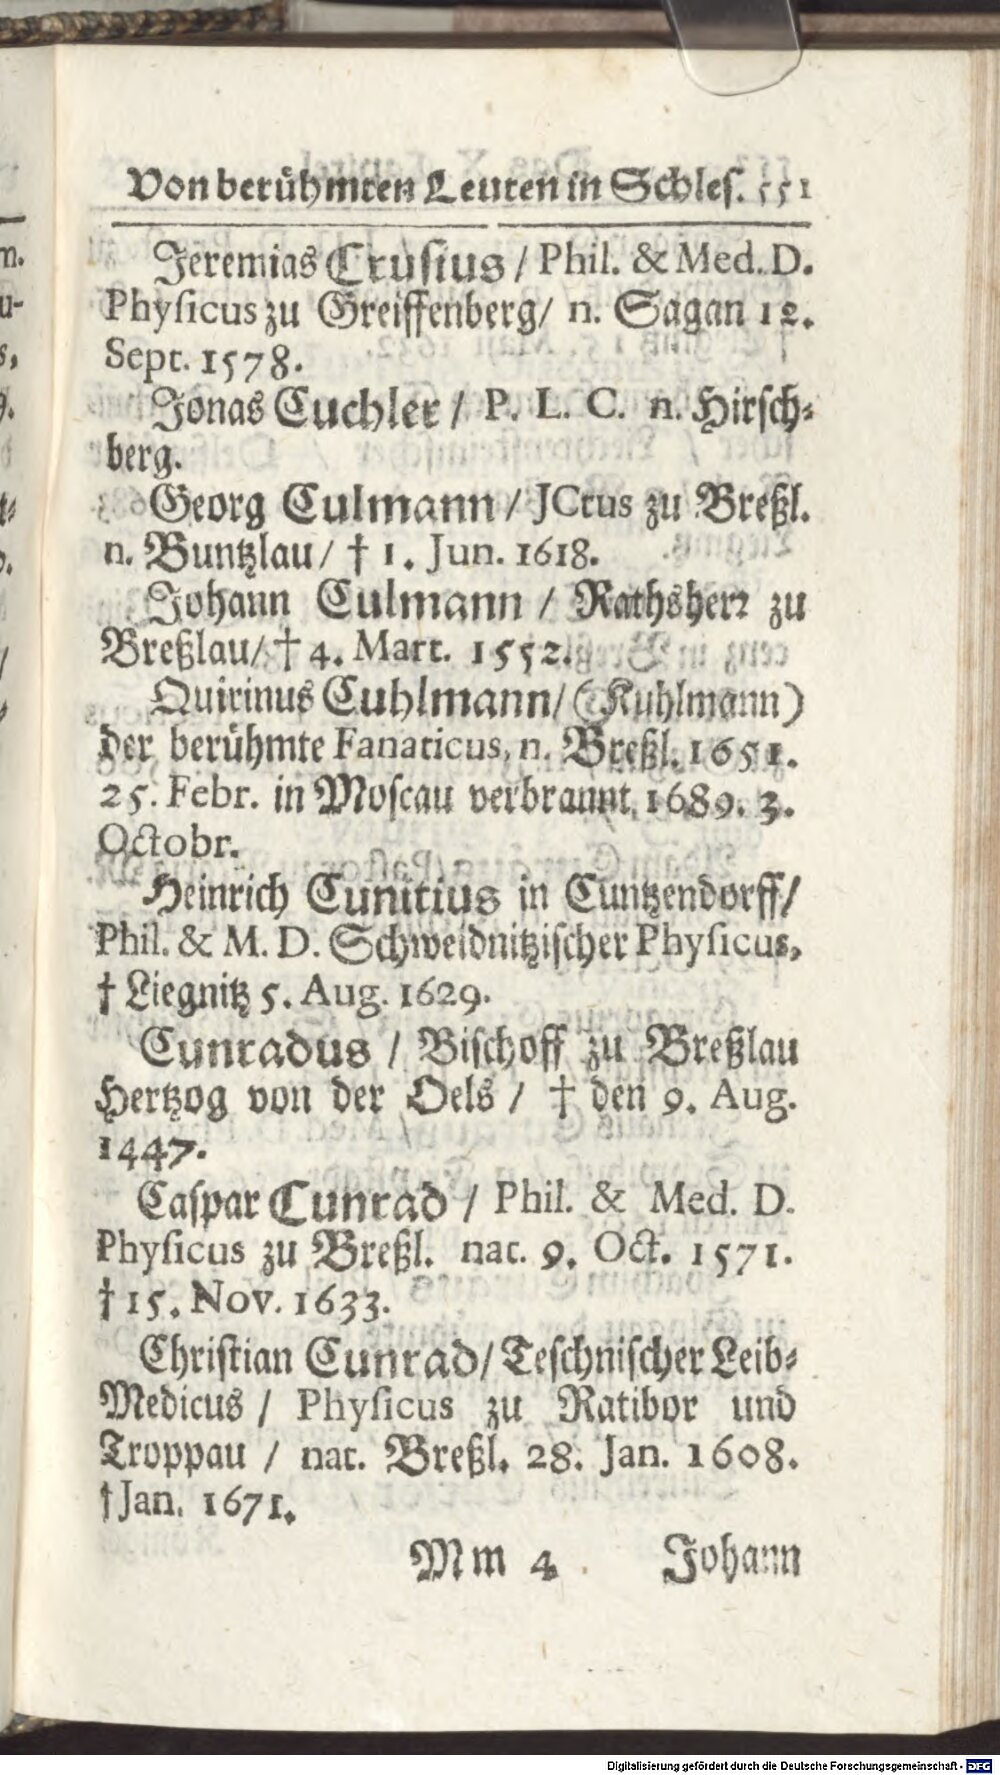 Von berühmten Leuten in Schles. 551
Jeremias Crusius / Phil. & Med. D.
Physicus zu Greiffenberg / n. Sagan 12.
Sept. 1578.
Jonas Cuchler / P. L. C. n. Hirsch-
berg.
Georg Culmann / JCtus zu Breßl.
n. Buntzlau / † 1. Jun. 1618.
Johann Culmann / Rathsherr zu
Breßlau / † 4. Mart. 1552.
Quirinus Cuhlmann / (Kuhlmann)
der berühmte Fanaticus, n. Breßl. 1651.
25. Febr. in Moscau verbrannt 1689. 3.
Octobr.
Heinrich Cunitius in Cuntzendorff /
Phil. & M. D. Schweidnitzischer Physicus,
† Liegnitz 5. Aug. 1629.
Cunradus / Bischoff zu Breßlau
Hertzog von der Oels / † den 9. Aug.
1447.
Caspar Cunrad / Phil. & Med. D.
Physicus zu Breßl. nat. 9. Oct. 1571.
† 15. Nov. 1633.
Christian Cunrad / Teschnischer Leib-
Medicus / Physicus zu Ratibor und
Troppau / nat. Breßl. 28. Jan. 1608.
† Jan. 1671.
Mm 4 Johann
Digitalisierung gefördert durch die Deutsche Forschungsgemeinschaft - DFG